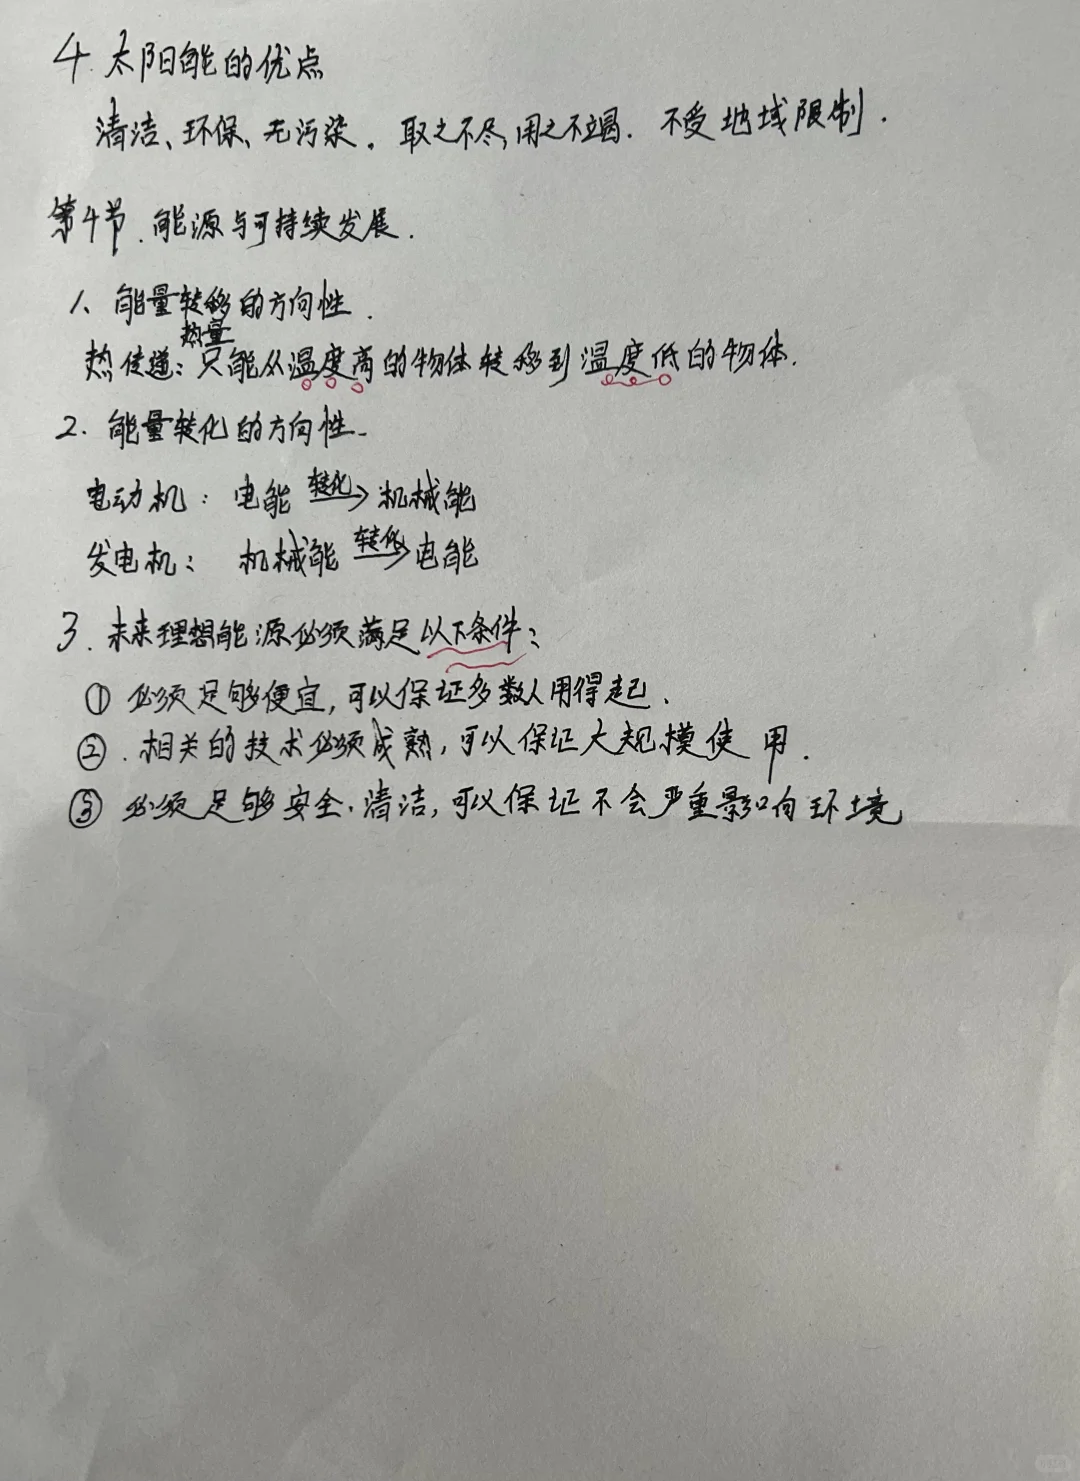 4. 太阳能的优点
清洁、环保、无污染。取之不尽,用之不竭. 不受地域限制.
第4节. 能源与可持续发展.
1、能量转移的方向性.
热量
热传递:只能从温度高的物体转移到温度低的物体.
2. 能量转化的方向性.
电动机: 电能 转化→ 机械能
发电机: 机械能 转化→ 电能
3. 未来理想能源必须满足以下条件:
① 必须足够便宜,可以保证多数人用得起.
②. 相关的技术必须成熟,可以保证大规模使用.
③ 必须足够安全.清洁,可以保证不会严重影响环境